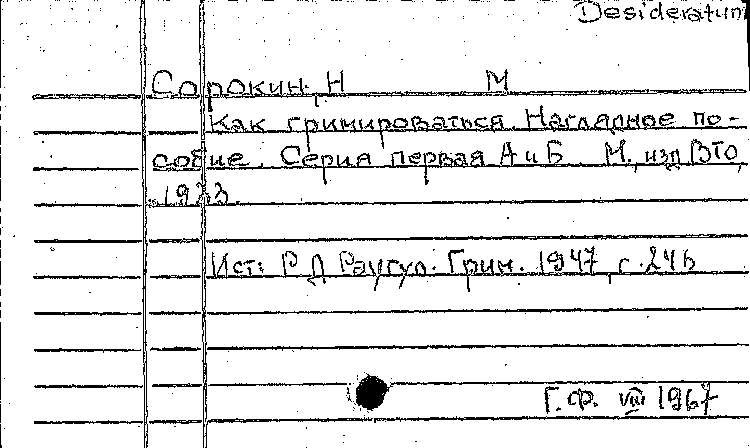 Desideratum
Сорокин, Н М
Как гримироваться. Наглядное по-
собие. Серия первая А и Б. М., изд ВТО,
1933.
Ист: Р Д Раугул. Грим. 1947, с. 246
Г.Ф. VIII 1967